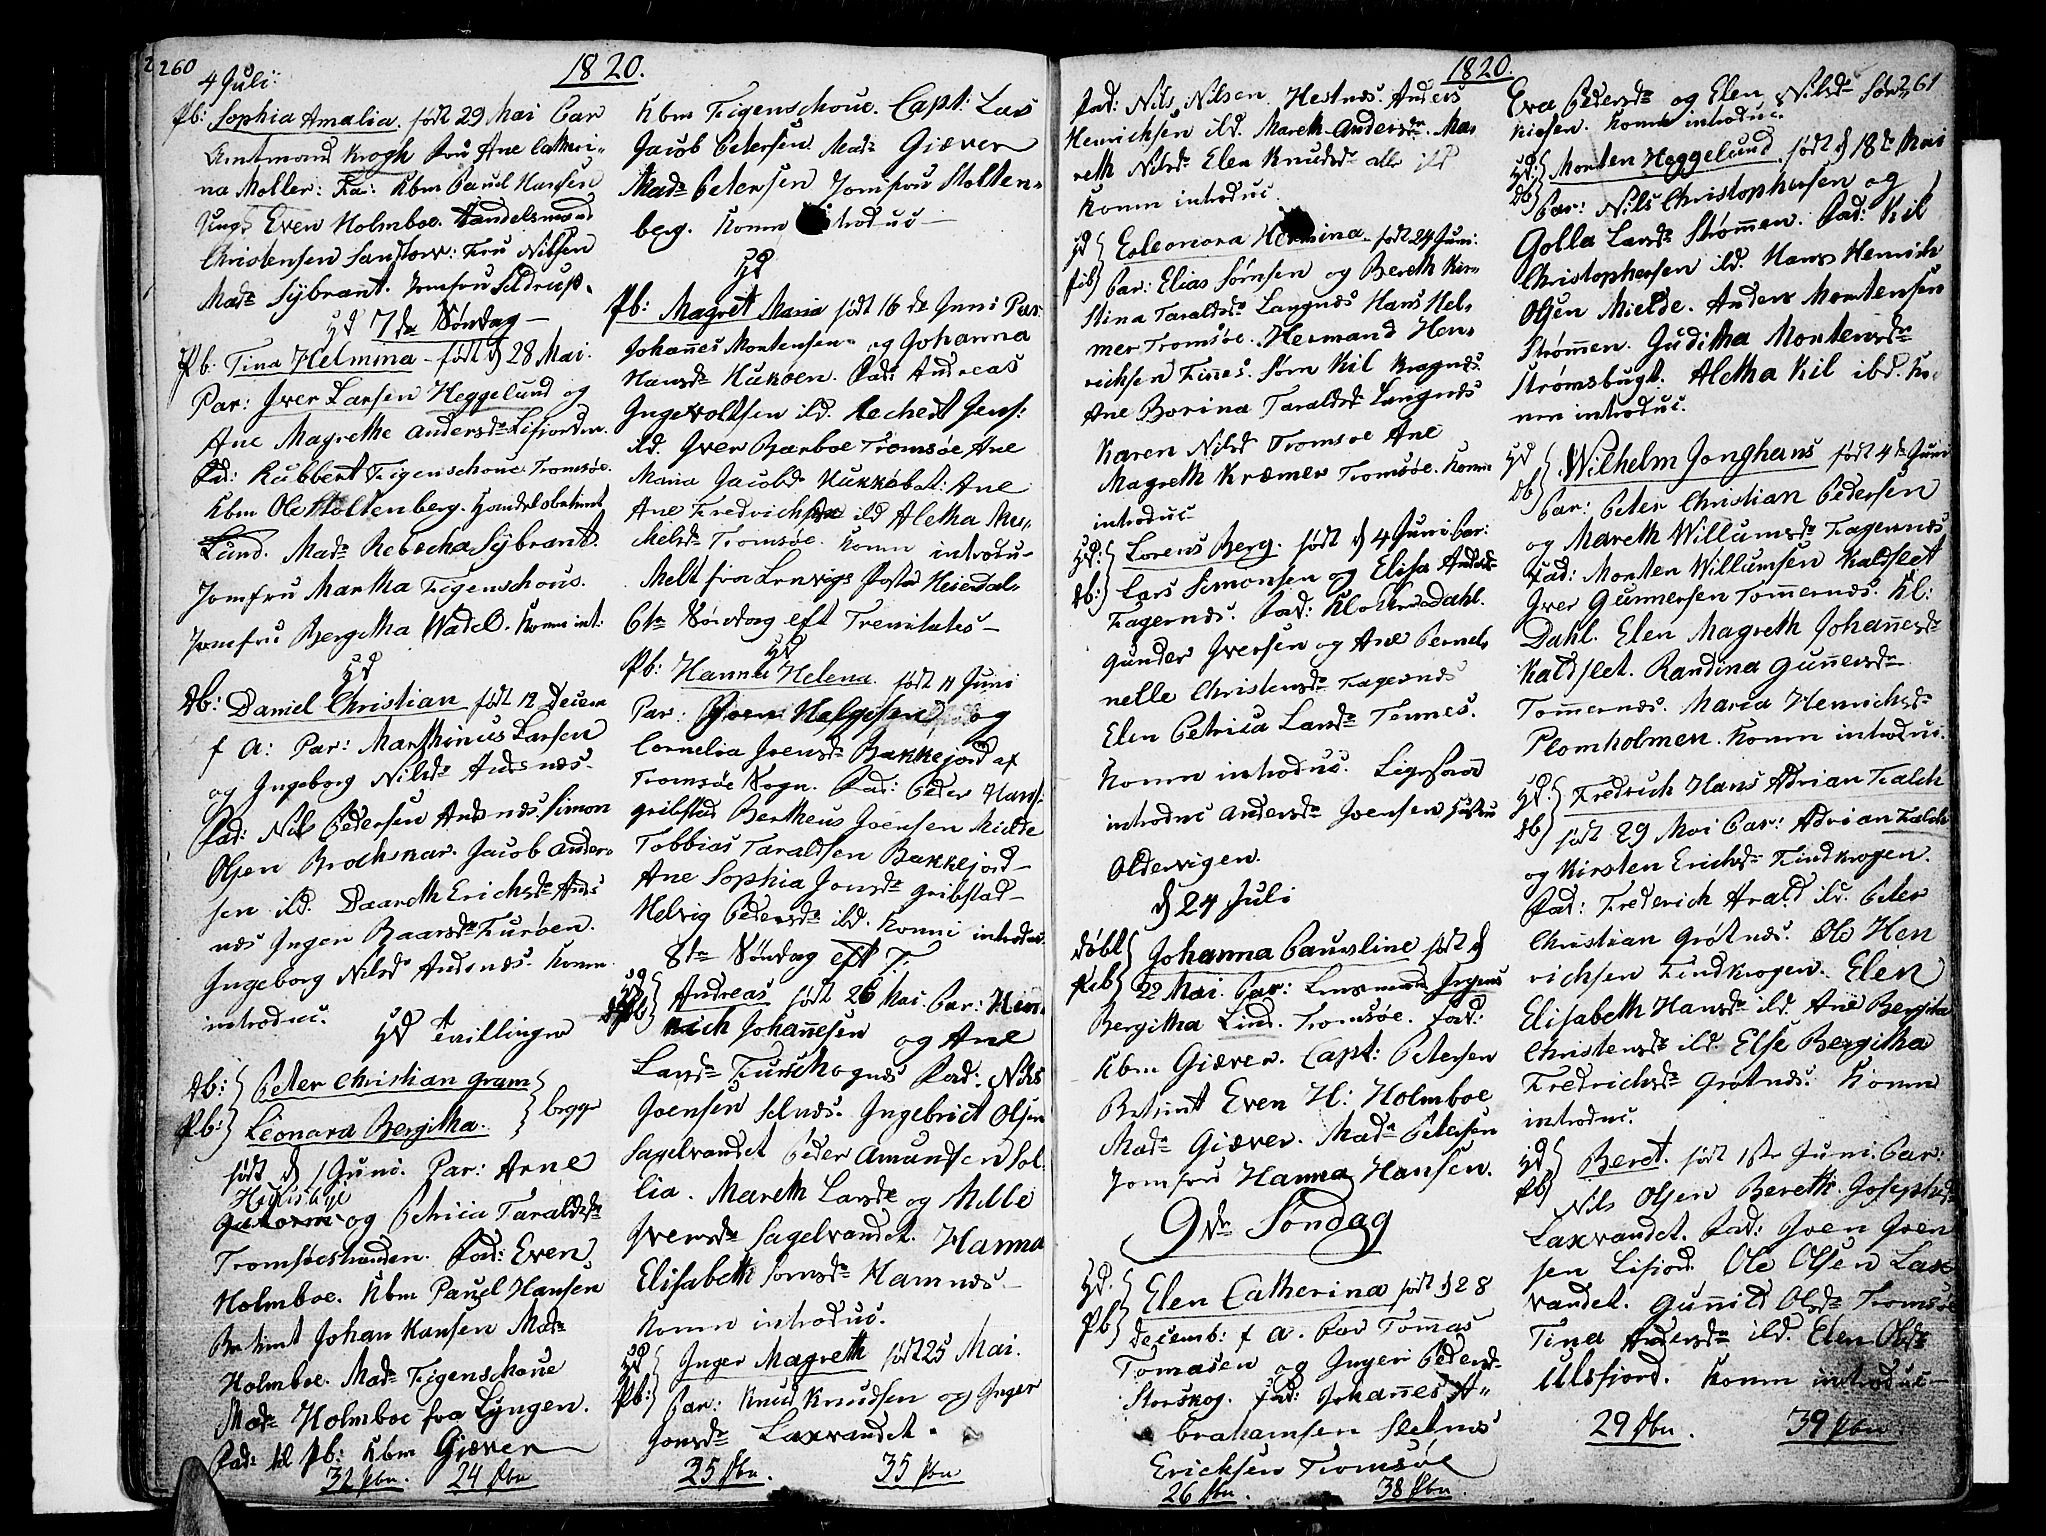 260
1820.
4 Juli:
Pb: Sophia Amalia. født 29 Mai Par
Amtmand Krogh Fru Ane Cathri-
na Moller: Fa: Kbm Pauel Hansen
Even Holmboe. Handelsmand
Christensen Fru Nilsen
Mad: Sybrant. Jomfru
Hd 7de Søndag —
Pb. Tina Helmina - født d 28 Mai.
Par: Iver Larsen Heggelund og
Ane Magrethe Andersd: Lifiorden.
Fad: Rubbert Figenschoue Tromsøe.
Kbm Ole Holtenberg. Handelsbetient
Lund. Mad: Rebecka Sybrant.
Jomfru Martha Figenschous.
Jomfru Bergitha Wadel. Konen int:
Hd
db: Daniel Christian født 12 Decem
f A: Par: Marthinus Larsen
og Ingeborg Nilsd: Andsnæs.
Fad: Nils Pedersen Andsnæs. Simon
Olsen Brochskar. Jacob Ander-
sen ild. Daareth Erichsd: Ands
næs Inger Baarsd: Furøen.
Ingeborg Nilsd Andsnæs. Konen
introduc.
Hd Tvillinger
db: Peter Christian Gram
Pb: Leonara Bergitha. begge
født d 1 Juni. Par: Arne
og Petrica Taraldsd:
Tromsøestranden. Fad: Even
Holmboe. Kbm Pauel Hansen
Betient Johan Hansen Mad:
Holmboe. Mad: Figenschoue
Mad: Holmboe fra Lyngen.
Fad: til Pb: Kbm Giæver
32 Pbn. 24 dbn
Kbm Figenschoue. Capt: Lars
Jacob Petersen Mad: Giæver
Mad: Petersen Jomfru Stolten-
berg. Konen introduc —
Hd
Pb: Magret Maria født 16 de Juni Par
Johannes Mortensen og Johanna
Hansd: Kukøen. Fad: Andreas
Ingevoldsen ild. Jens:
ild. Iver Barboe Tromsøe Ane
Maria Jacobd: Ane
Ane Fredrichsd: ild Aletha
Nielsd: Tromsøe. Konen introdu-
Melt fra Lenvigs
6te Søndag eft Trenitatis —
Hd
Pb: Hanna Helena. født 11 Juni
Par: Joen Helgesen og
Cornelia Joensd: Bakkejord af
Tromsøe Sogn. Fad: Peder Hans:
gribstad Bertheus Joensen Mielde
Tobbias Taraldsen Bakkejord —
Ane Sophia Jonsd: gribstad —
Helvig Pedersd: ild. Konen introduc.
8de Søndag eft T.
Hd Andreas født 26 Mai. Par: Hen-
rich Johannesen og Ane
Larsd: Fad: Nils
Joensen Selnæs. Ingebrict Olsen
Sagelvandet Peder Amundsen Sol-
lia. Mareth Larsd: og Mille
Iversd: Sagelvandet. Hanna
Elisabeth Hamnæs —
Konen introduc.
Hd Inger Magreth født 25 Mai.
Pb: Par: Knud Knudsen og Inger
Jonsd: Laxvandet.
25 dbn. 35 Pbn
1820.
Fad: Nils Nilsen Hestnæs. Anders
Henrichsen ild. Mareth Andersd: Ma-
reth Nilsd: Elen Knudsd: alle ild
Konen introduc.
Hd Eeleonora Hermina. født 24 Juni.
Par: Elias Sørnsen og Bereth Kir-
stina Taraldsd: Langnæs Hans Hel-
mer Tromsøe. Hermand Hen-
richsen Finnes. Sørn Kil Kragnæs.
Ane Borina Taraldsd: Langnæs
Karen Nilsd Tromsøe Ane
Magreth Kræmer Tromsøe. Konen
introduc
Hd: Lorens Berg. født d 4 Juni Par:
db: Lars Simonsen og Elisa Andersd:
Fagernæs. Fad: Klokker Dahl.
Gunder Iversen og Ane Pernel-
nelle Christensd: Fagernæs
Elen Petrica Larsd: Tennes.
Konen introduc.
introduc Joensen Hustru
Oldervigen.
d 24 Juli
døbt Johanna Pauline født d
22 Mai. Par: Lensmand
Bergitha Lind. Tromsøe. Fad:
Kbm Giæver. Capt: Petersen
Betient Even H: Holmboe
Mad: Giæver. Mad: Petersen
Jomfru Hanna Hansen.
9de Søndag
Hd. Elen Catherina født d 28
Pb Decemb: f A. Par Tommas
Tomasen og Ingeri Pedersd:
Storskog. Fad: Johannes A-
brahamsen Selnæs
Ericksen Tromsøe
26 dbn. 38 Pbn.
1820.
261
Eva Pedersd: og Elen Nilsd: Søn-
Konen introduc.
Hd: Morten Heggelund født d 18de Mai
db Par: Nils Christophersen og
Golla Larsd: Strømmen. Fad: Kil
Christophersen ild. Hans Henrich
Olsen Mielde. Anders Mortensen
Strømmen. Juditha Mortensd:
Strømsbugt. Aletha Kil ibd. Ko-
nen introduc.
Hd Wilhelm Jonghans født 4de Juni
db Par: Peter Christian Pedersen
og Mareth Willumsd: Fagernæs
Fad: Morten Willumsen Kaldslet
Iver Gunnersen Tommernæs. Kl:
Dahl. Elen Magreth Johannesd:
Kaldslet. Randina Gunnersd:
Tommernæs. Maria Henrichsd:
Plomholmen. Konen introduc.
Hd. Fredrich Hans Adrian Falch
db født 29 Mai Par: Adrian Falch
og Kirsten Erichsd: Findkrogen.
Fad: Frederich Arald ild. Peter
Christian Grøtnæs. Ole Hen
richsen Findkrogen. Elen
Elisabeth Hansd: ild. Ane Bergitha
Christensd: ild. Else Bergitha
Fredrichsd: Grøtnæs. Konen
introduc.
Hd Beret. født 1ste Juni. Par:
Pb Nils Olsen Bereth Josephsd:
Laxvandet. Fad: Joen Joen
sen Lifiord. Ole Olsen Lax
vandet. Gunnild Olsd: Tromsøe
Tina Andersd: ild. Elen Olsd:
Ulsfiord. Konen introduc —
29 dbn. 39 Pbn